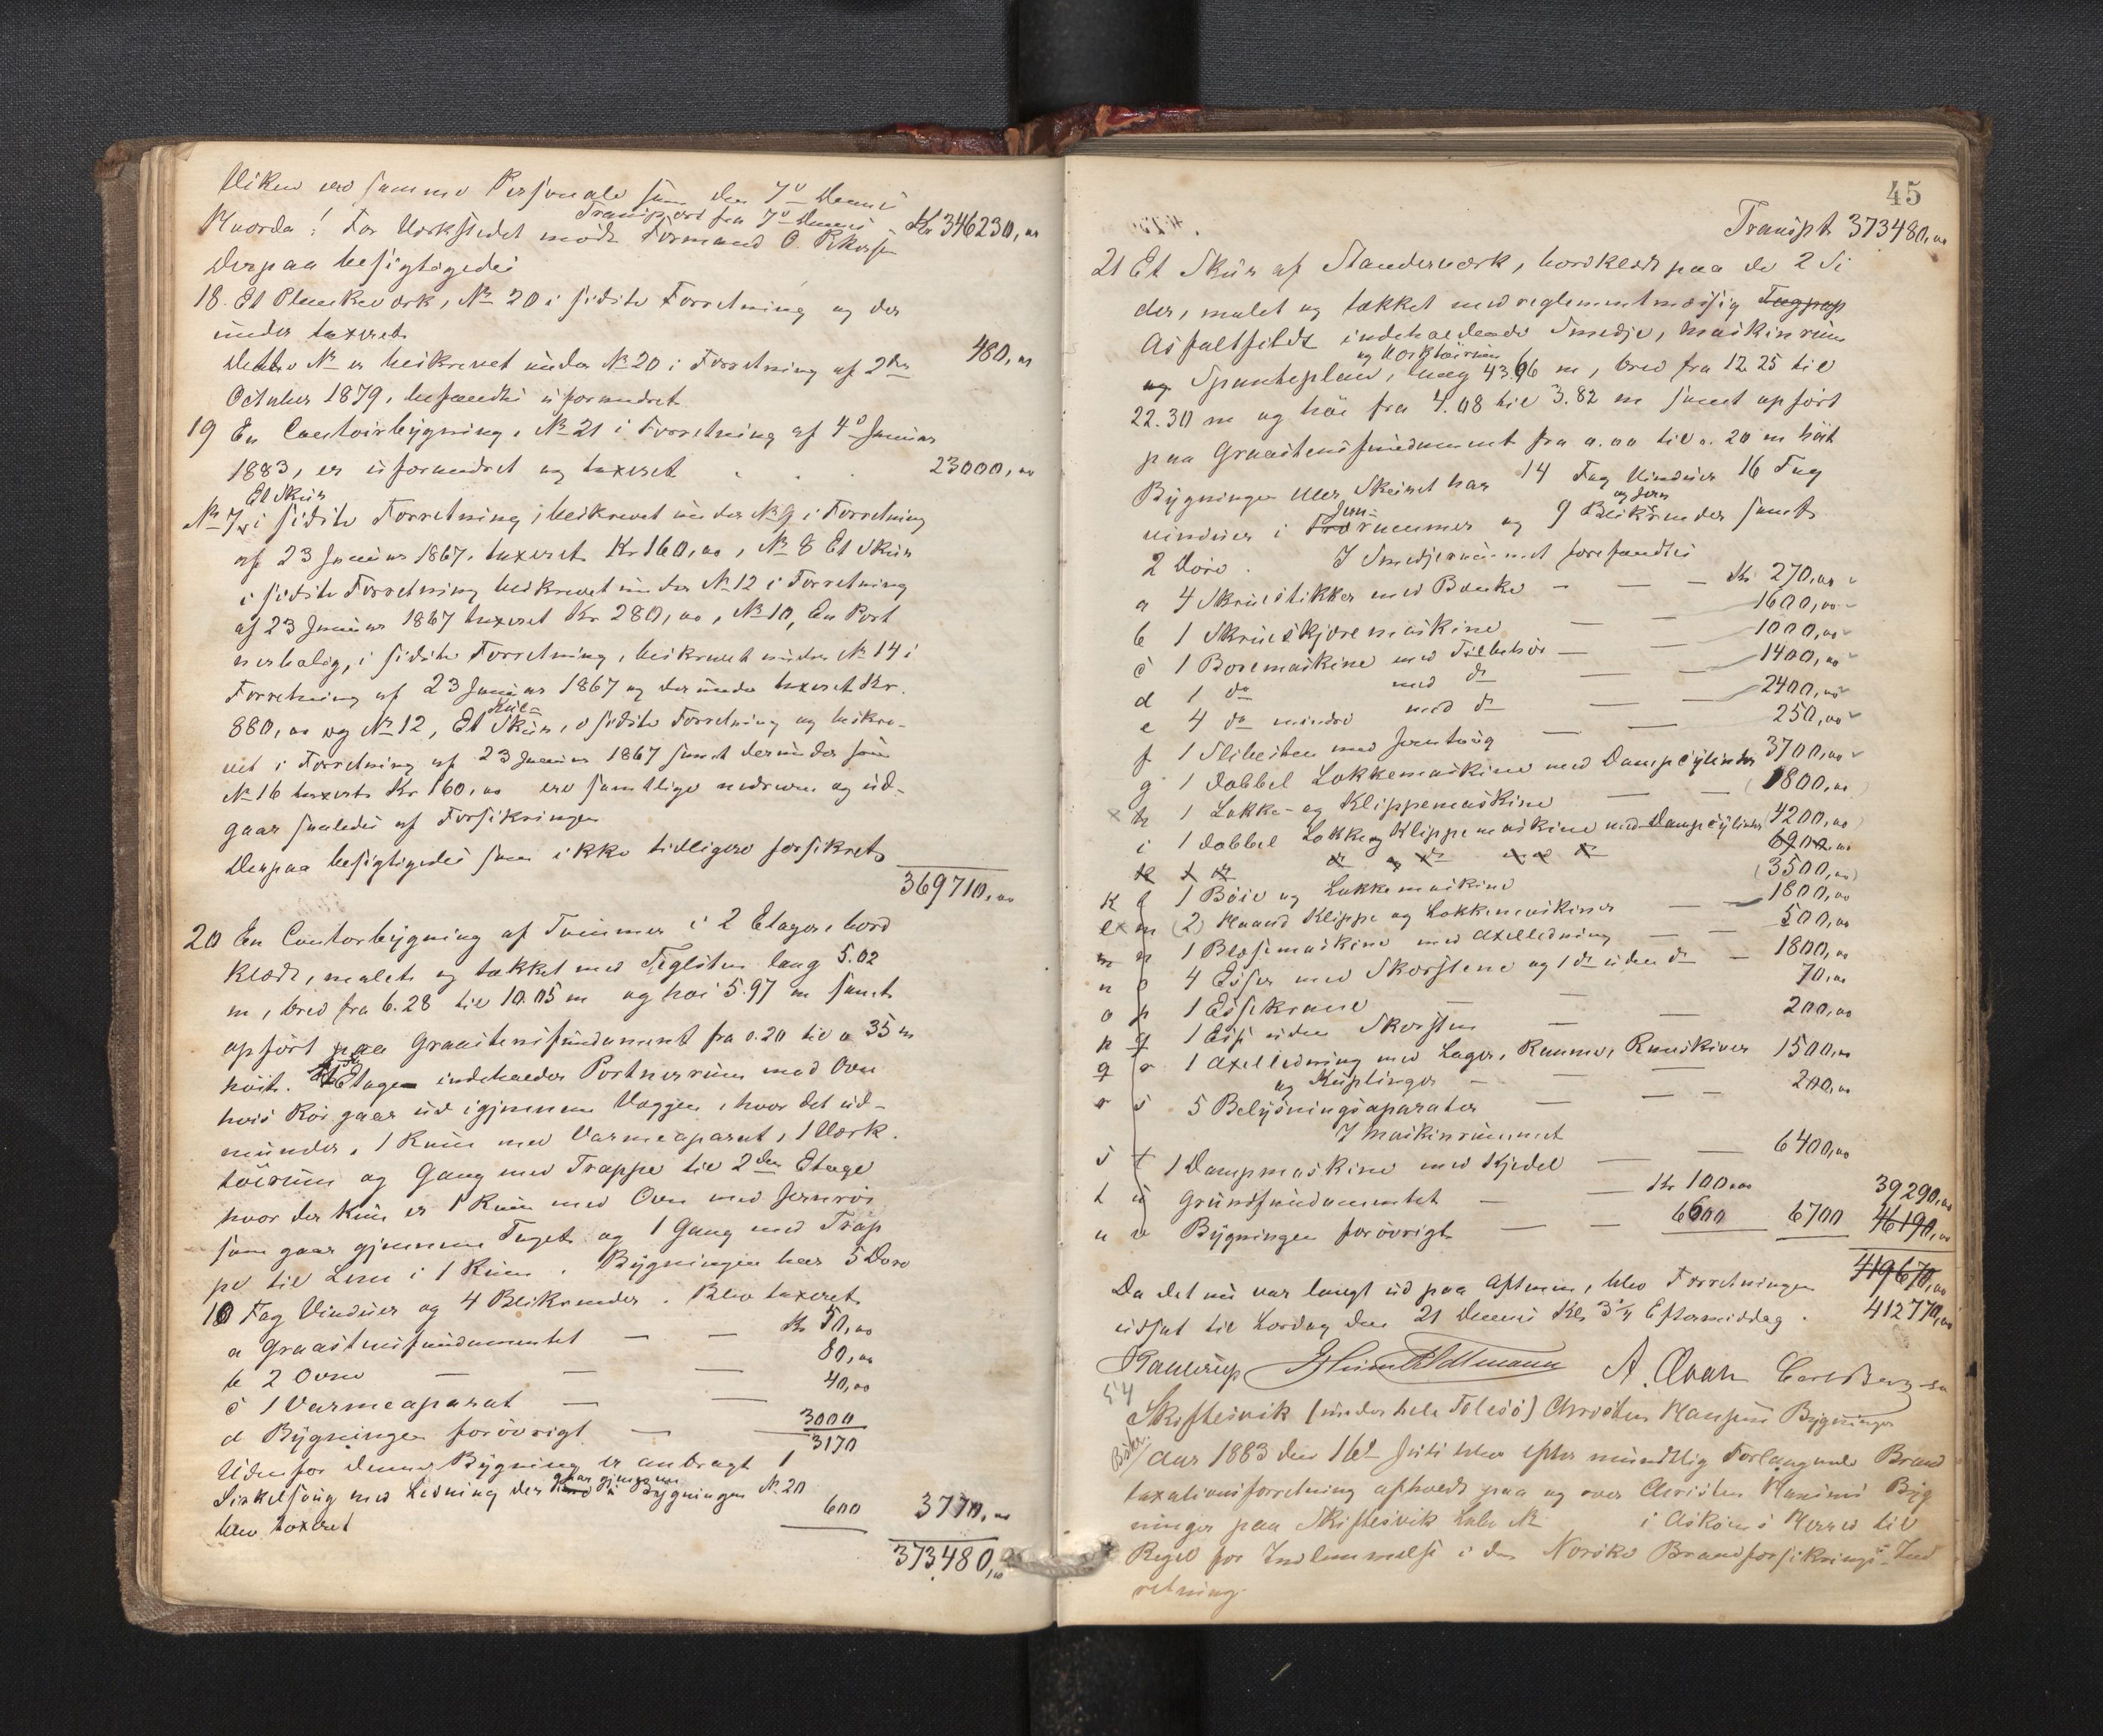 samme Personale som den 7de Dennes
Transport fra 7de Dennes Kr 346230,00
For Værkstedet mødte Formand O.
Derpaa besigtigedes
18. Et Plankeværk, No 20 i sidste Forretning og der
under taxeret 480,00
Dette No er beskrevet under No 20 i Forretning af 2den
October 1879, befandtes uforandret
19 En Contoirbygning, No 21 i Forretning af 4de Januar
1883, er uforandret og taxeret 23000,00
Et Skur
No 7, i sidste Forretning, beskrevet under No 9 i Forretning
af 23 Januar 1867, taxeret Kr 160,00, No 8 Et Skur
i sidste Forretning beskrevet under No 12 i Forretning
af 23 Januar 1867 taxeret Kr 280,00, No 10, En Port
nerbolig, i sidste Forretning, beskrevet under No 14 i
Forretning af 23 Januar 1867 og derunder taxeret Kr.
Kul-
880,00 og No 12, Et Skur, i sidste Forretning og beskre-
vet i Forretning af 23 Januar 1867 samt derunder som
No 16 taxert Kr 160,00 ere samtlige nedrevne og ud-
gaar saaledes af Forsikringen
Derpaa besigtigedes som ikke tidligere forsikret
369710,00
20 En Contorbygning af Tømmer i 2 Etager, bord
klædt, malet og tækket med Teglsten lang 5.02
m, bred fra 6.28 til 10.05 m og høi 5.97 m samt
opført paa Graastensfundament fra 0.20 til 0.35 m
høit. 1ste Etage indeholder Portnerrum med Ovn
hvis Rør gaar ud igjennem Væggen, hvor det ud-
munder, 1 Rum med Varmeaparat, 1 Værk-
tøirum og Gang med Trappe til 2den Etage
hvor der kun er 1 Rum med Ovn med Jernrør
som gaar gjennem Taget og 1 Gang med Trap
pe til Lem i 1 Rum. Bygningen har 5 Døre
10 Fag Vinduer og 4 Blikrender. Blev taxeret
a Graastensfundamentet Kr 50,00
b 2 Ovne 80,00
c 1 Varmeaparat 40,00
d Bygningen forøvrigt 3000
3170
Udenfor denne Bygning er anbragt 1
Sirkelsaug med Ledning der gaar gjennem Bygningen No 20
blev taxeret 600 3770,00
373480,00
45
Transpt 373480,00
21 Et Skur af Standerværk, bordklædt paa de 2 Si
der, malet og tækket med reglementmæssig Tagpap
Asfaltfildt indeholdende Smedje, Maskinrum
og Værktøirum
og Spanteplan, lang 43.66 m, bred fra 12.25 til
22.30 m og høi fra 4.08 til 3.82 m samt opført
paa Graastensfundament fra 0.00 til 0.20 m høit
Bygningen eller Skuret har 14 Fag Vinduer 16 Fag
Jern- og Jern
vinduer i Trærammer og 9 Blikrender samt
2 Døre. I Smedjerummet forefandtes
a 4 Skruestikker med Bænke Kr 270,00
b 1 Skrueskjæremaskine 1600,00
c 1 Boremaskine med Tilbehør 1000,00
d 1 do med do 1400,00
e 4 do mindre med do 2400,00
f 1 Slibesten med Jerntrug 250,00
g 1 dobbel Lokkemaskine med Dampcylinder 3700,00
h 1 Lokke- og Klippemaskine 1800,00
i 1 dobbel Lokke og Klippemaskine med Dampcylinder 4200,00
k 1 do do og do med do 6900,00
k l 1 Bøie og Lokkemaskine 3500,00
l m 2 Haand Klippe og Lokkemaskiner 1800,00
m n 1 Blæsemaskine med Axelledning 500,00
n o 4 Esser med Skorstene og 1 do uden do 1800,00
o p 1 Essekrane 70,00
p q 1 Esse uden Skorsten 200,00
q r 1 Axelledning med Lager, Remmer, Remskiver
og Kuplinger 1500,00
r s 5 Belysningsaparater 200,00
I Maskinrummet
s t 1 Dampmaskine med Kjedel 6400,00
t u Grundfundamentet Kr 100,00 39290,00
u v Bygningen forøvrigt 6600 6700 46190,00
419670,00
Da det nu var langt ud paa Aftenen, blev Forretningen
udsat til Lørdag den 21 Dennes Kl 3¼ Eftermiddag. 412770,00
54
Skiftesvik (under hele Tolesø) Christen Hansens Bygninger
Aar 1883 den 16de Juli blev efter mundtlig Forlangende Brand
taxationsforretning afholdt paa og over Christen Hansens Byg
ninger paa Skiftesvik Løbe No i Askøens Herred til
Regel for Indlemmelse i den Norske Brandforsikrings-Ind
retning.